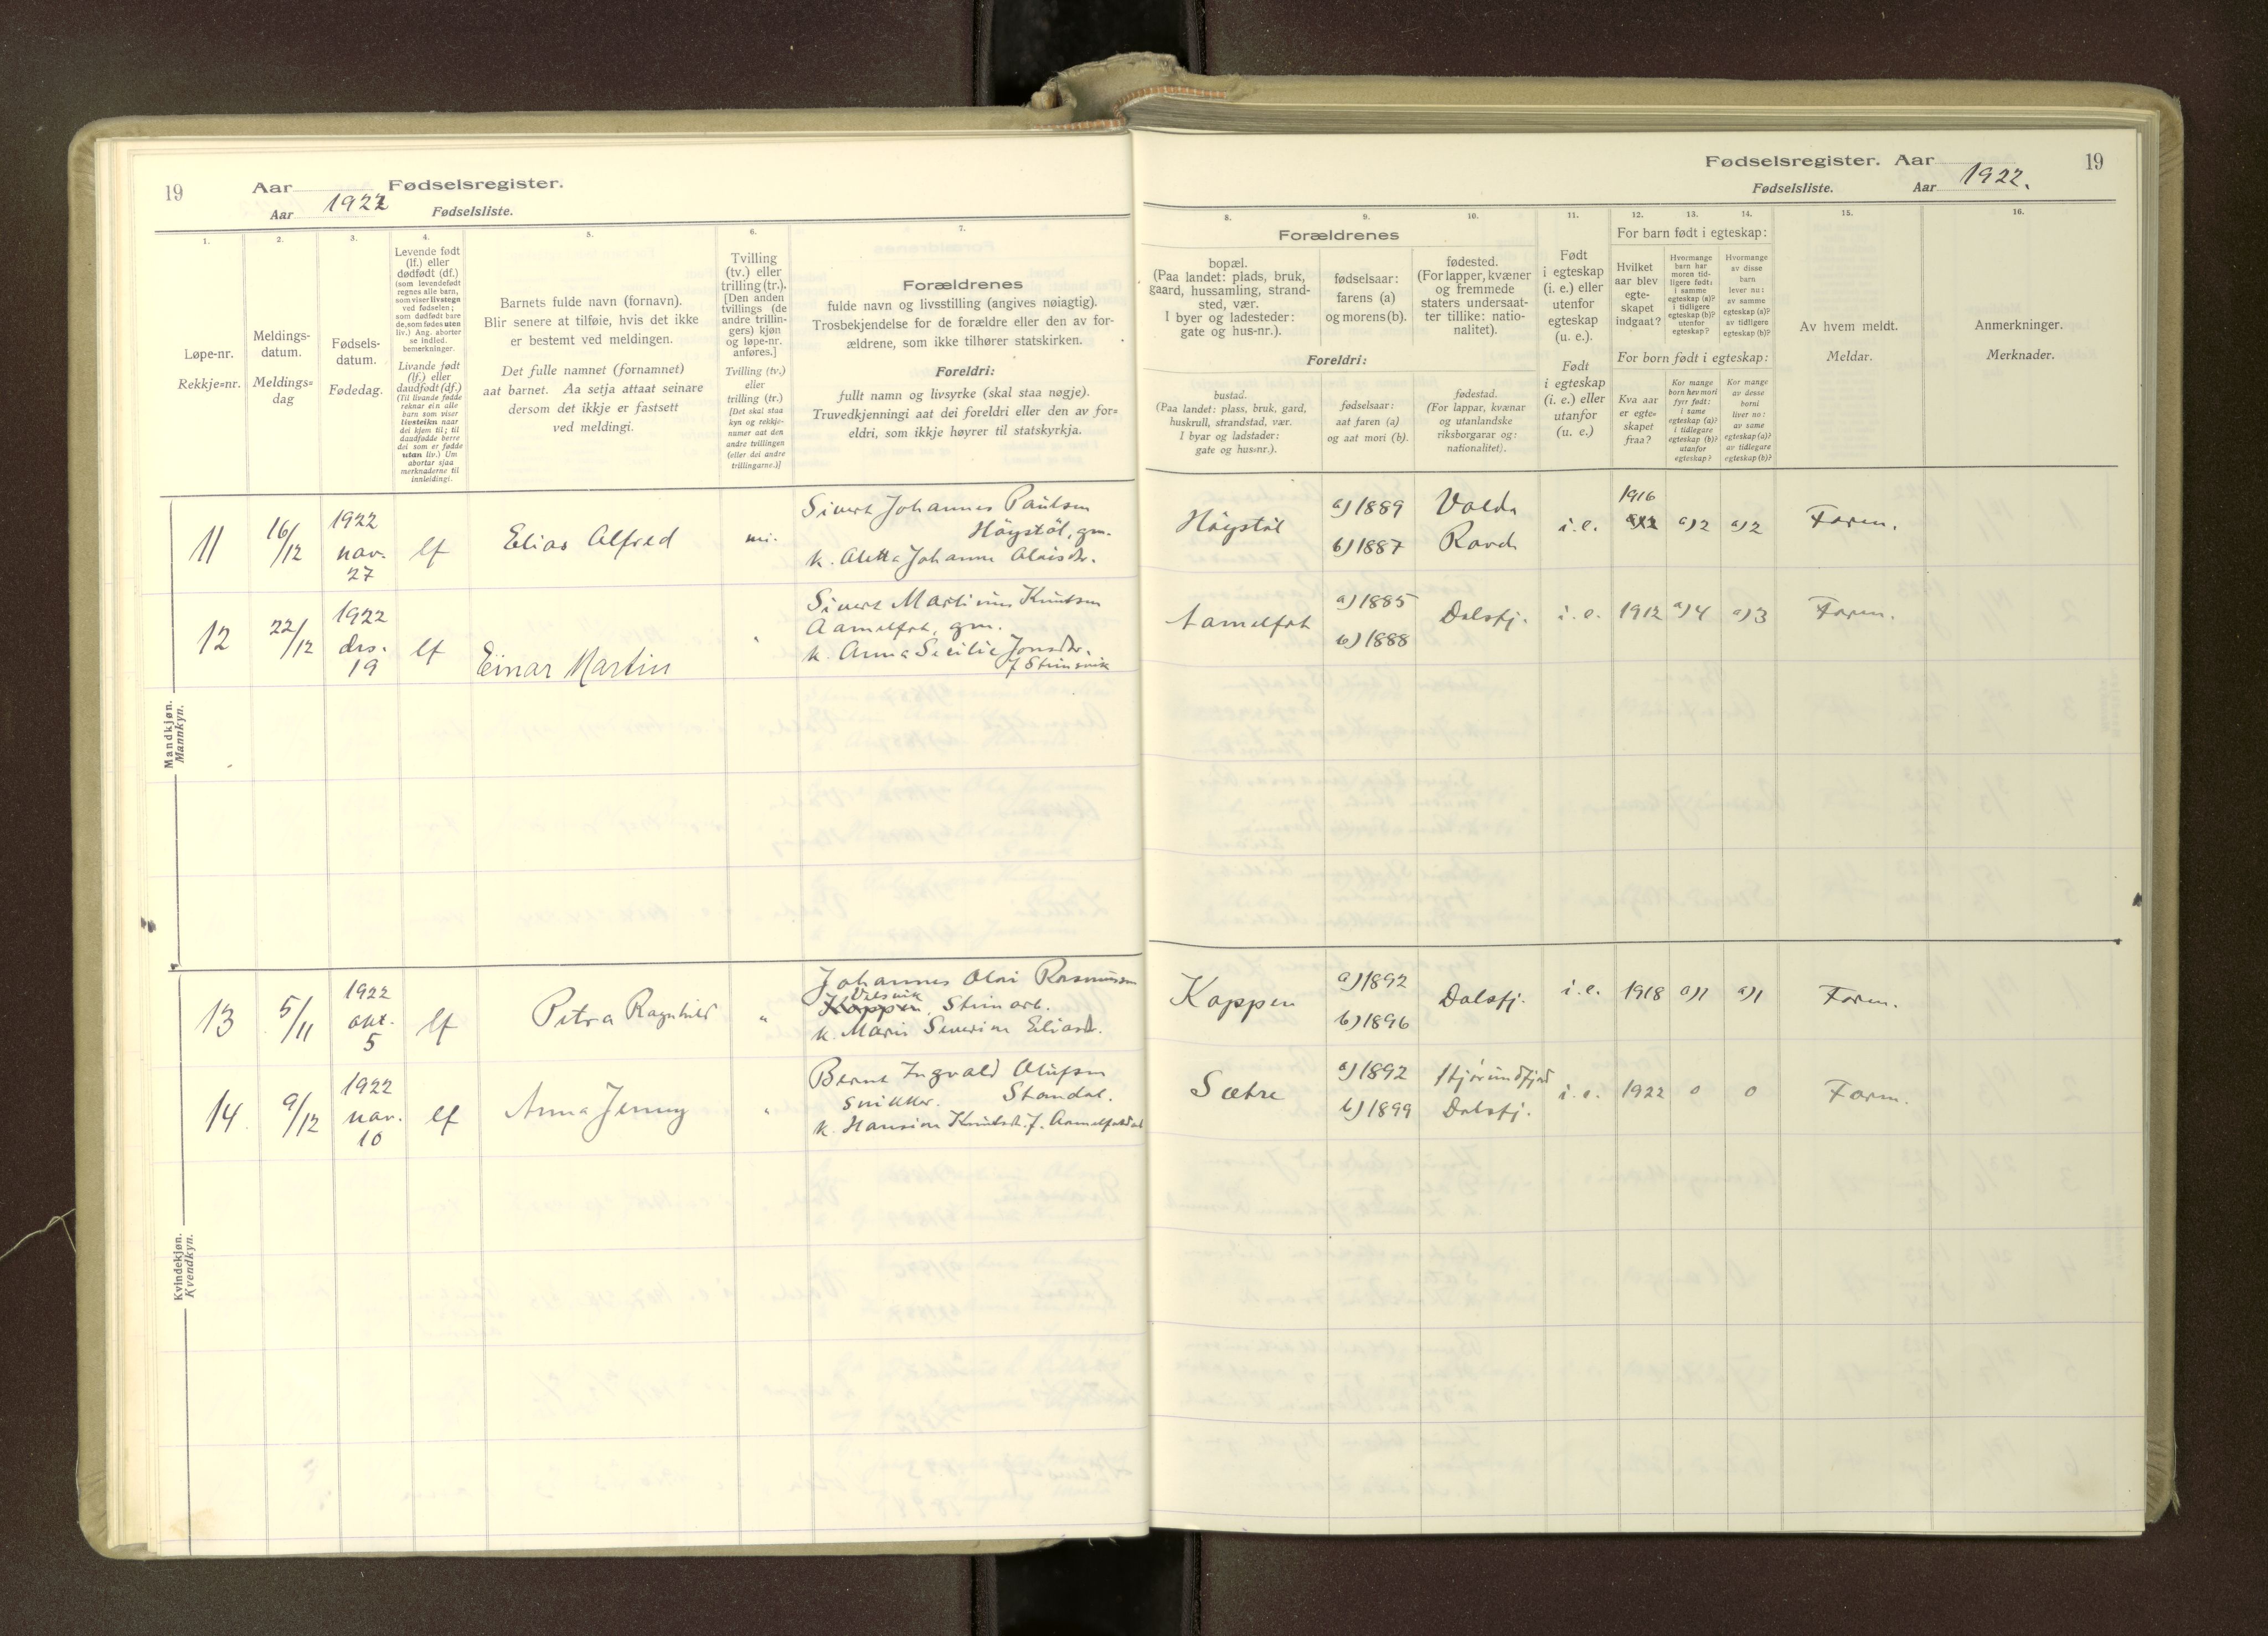 19
Aar 1922 Fødselsregister.
Aar Fødselsliste.
1.
Løpe-nr.
Rekkje=nr.
2.
Meldings-
datum.
Meldings=
dag
3.
Fødsels-
datum.
Fødedag.
4.
Levende født
(lf.) eller
dødfødt (df.)
(som levendefødt
regnes alle barn,
som viser livstegn
ved fødselen;
som dødfødt bare
de, som fødes uten
liv.) Ang. aborter
se indled.
bemerkninger.
Livande født
(lf.) eller
daudfødt (df.)
(Til livande fødde
reknar ein alle
barn som viser
livsteikn naar
dei kjem til; til
daudfødde berre
dei som er fødde
utan liv.) Um
abortar sjaa
merknaderne til
innleidingi.
5.
Barnets fulde navn (fornavn).
Blir senere at tilføie, hvis det ikke
er bestemt ved meldingen.
Det fulle namnet (fornamnet)
aat barnet. Aa setja attaat seinare
dersom det ikkje er fastsett
ved meldingi.
6.
Tvilling
(tv.) eller
trilling (tr.).
[Den anden
tvillings (de
andre trillin-
gers) kjøn
og løpe-nr.
anføres.]
Tvilling (tv.)
eller
trilling (tr.)
[Det skal staa
kyn og rekkje-
numer aat den
andre tvillingen
(eller dei andre
trillingarne.)]
7.
Forældrenes
fulde navn og livsstilling (angives nøiagtig).
Trosbekjendelse for de forældre eller den av for-
ældrene, som ikke tilhører statskirken.
Foreldri:
fullt namn og livsyrke (skal staa nøgje).
Truvedkjenningi aat dei foreldri eller den av for=
eldri, som ikkje høyrer til statskyrkja.
Mandkjøn.
Mannkyn.
11
16/12
1922
nov.
27
lf
Elias Alfred
Sivert Johannes Paulsen
Höystöl, gm.
k. Aletta Johanne Olaisdr.
12
22/12
1922
des.
19
lf
Einar Martin
"
Sivert Martinus Knutsen
Aamelfot, gm.
k. Anna Sicilie Jonsdr.
f Steinsvik
Kvindekjøn.
Kvendkyn.
13
5/11
1922
okt.
5
lf
Petra Ragnhild
"
Johannes Olai Rasmussen
Koppen, Steinarb.
k. Marie Severine Eliasd.
14
9/12
1922
nov.
10
lf
Anna Jenny
"
Bernt Ingvald Olufsen
snikker. Standal.
k. Hansine Knutsd. f. Aamelfotdal
Fødselsregister. Aar 19
Fødselsliste. Aar 1922.
8.
Forældrenes
bopæl.
(Paa landet: plads, bruk,
gaard, hussamling, strand-
sted, vær.
I byer og ladesteder:
gate og hus-nr.).
Foreldri:
bustad.
(Paa landet: plass, bruk, gard,
huskrull, strandstad, vær.
I byar og ladstader:
gate og hus=nr.).
9.
fødselsaar:
farens (a)
og morens (b).
fødselsaar:
aat faren (a)
og aat mori (b).
10.
fødested.
(For lapper, kvæner
og fremmede
staters undersaat-
ter tillike: natio-
nalitet).
fødestad.
(For lappar, kvænar
og utanlandske
riksborgarar og:
nationalitet).
11.
Født
i egteskap
(i. e.) eller
utenfor
egteskap
(u. e.).
Født
i egteskap
(i. e.) eller
utanfor
(u. e.)
12.
For barn født i egteskap:
Hvilket
aar blev
egte-
skapet
indgaat?
For born født i egteskap:
Kva aar
er egte=
skapet
fraa?
13.
Hvormange
barn har
moren tid-
ligere født:
i samme
egteskap (a)?
i tidligere
egteskap (b)?
utenfor
egteskap?
Kor mange
born hev mori
fyrr født:
i same
egteskap (a)?
i tidlegare
egteskap (b)?
utanfor
egteskap?
14.
Hvormange
av disse
barn
lever nu:
av samme
egteskap (a)?
av tidligere
egteskap (b)?
Kor mange
av desse
borni
liver no:
av same
egteskap (a)?
av tidlegare
egteskap (b)?
15.
Av hvem meldt.
Meldar.
16.
Anmerkninger.
Merknader.
Höystöl
a) 1889
b) 1887
Volda
i.e.
1916
a) 2
a) 2
Faren.
Aamelfot
a) 1885
b) 1888
Dalsfj.
i. e.
1912
a) 4
a) 3
Faren.
Koppen
a) 1892
b) 1896
Dalsfj.
i. e.
1918
a) 1
a) 1
Faren.
Sætre
a) 1892
b) 1899
Hjörundfjord
Dalsfj.
i. e.
1922
0
0
Faren.